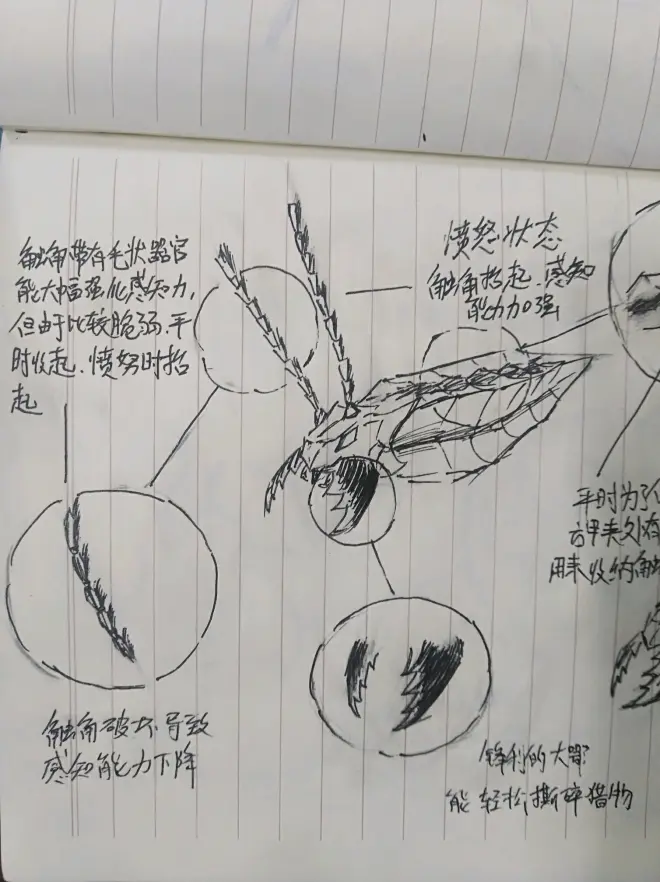 触角带有毛状器官
能大幅强化感知力,
但由于比较脆弱.平
时收起.愤努时抬
起
愤怒状态
触角抬起.感知
能力加强
平时为了
甲壳处有
用来收纳触
触角破坏导致
感知能力下降
锋利的大嘴
能轻松撕碎猎物